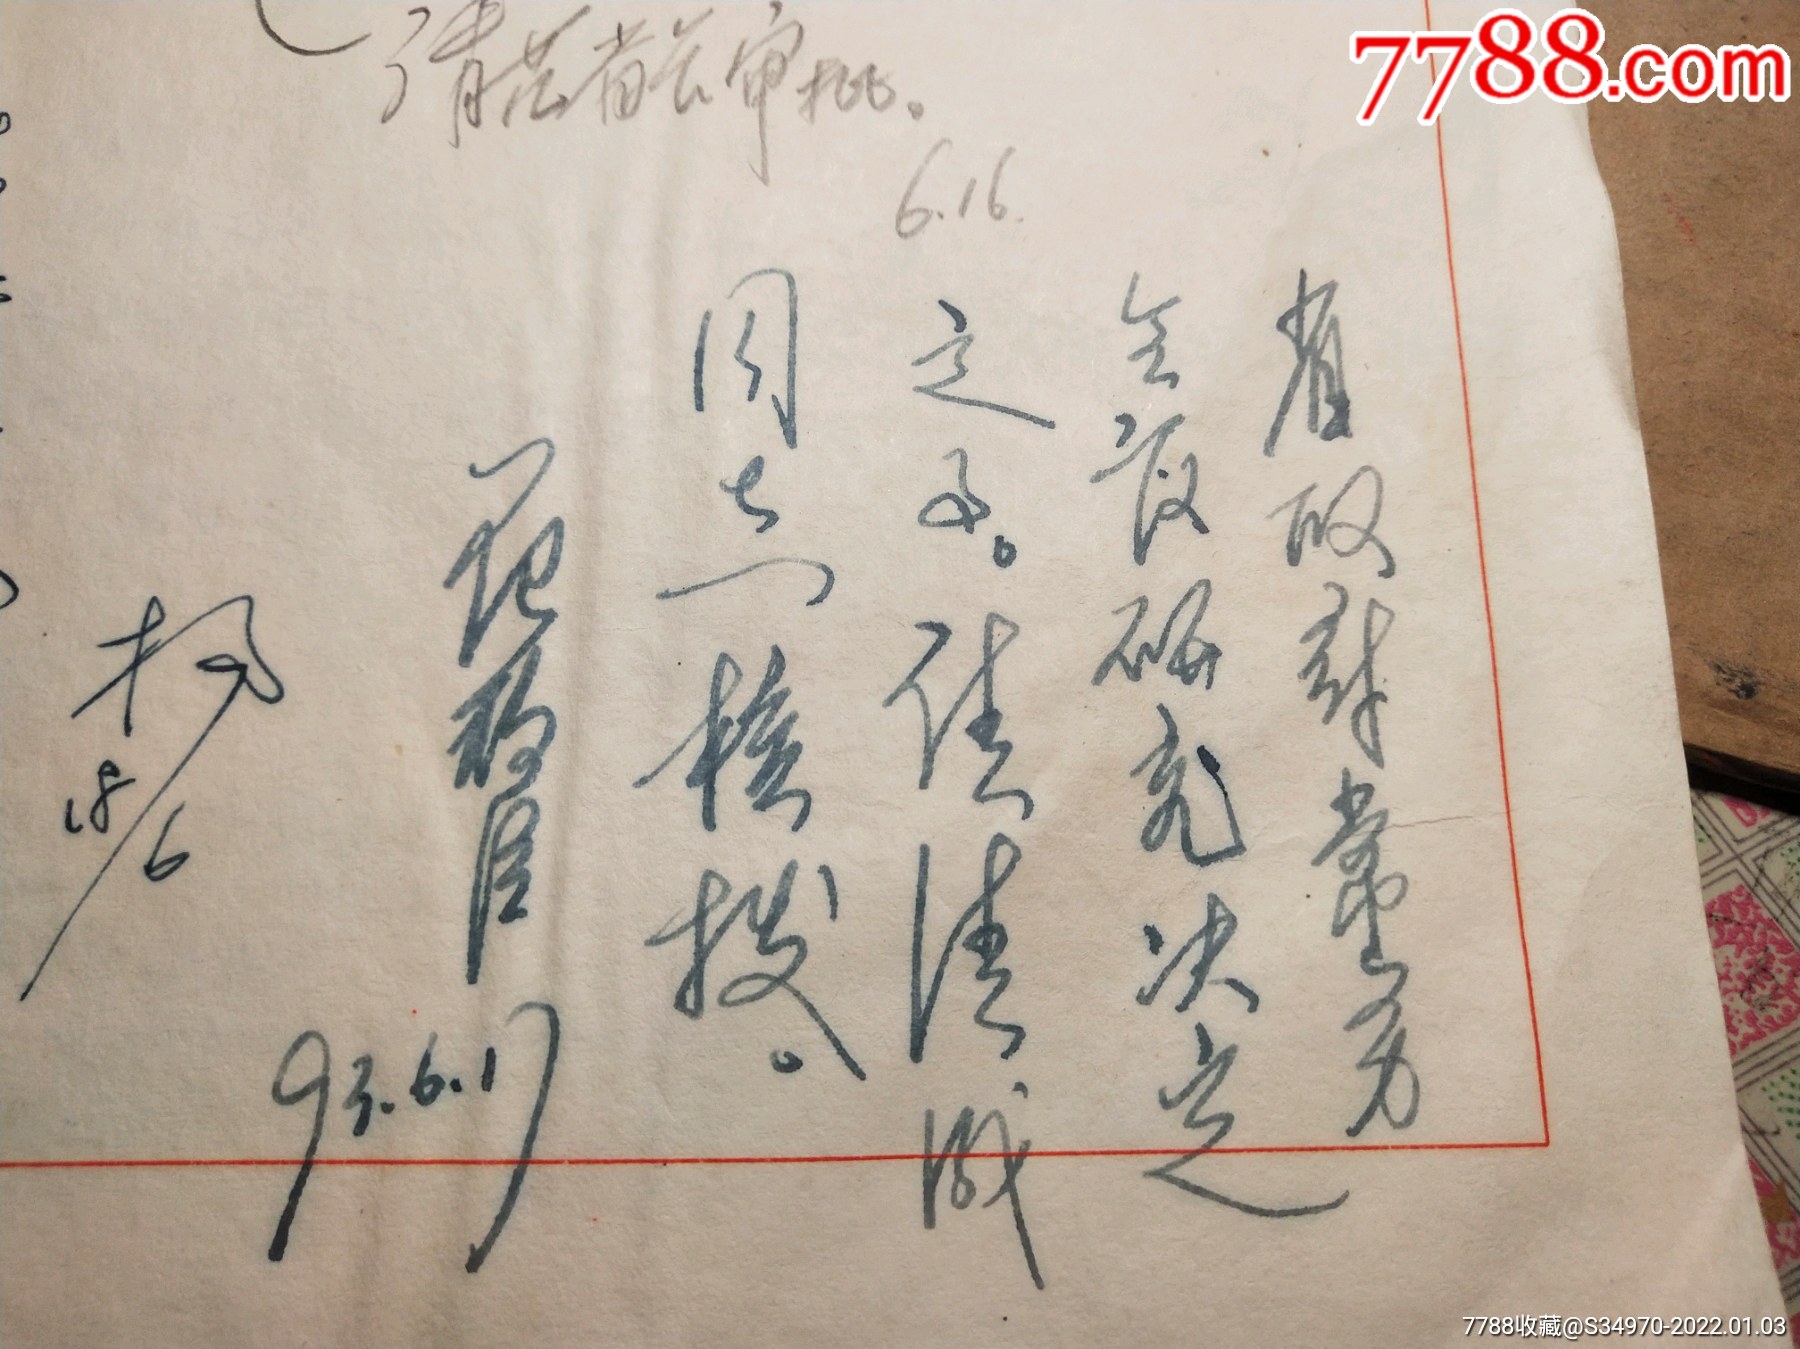 请范省长审批。
6.16.
省政府常务
会议研究决定
之事。
同志核拨。
93.6.17
杨
18/6
7788.com
7788收藏@S34970-2022.01.03